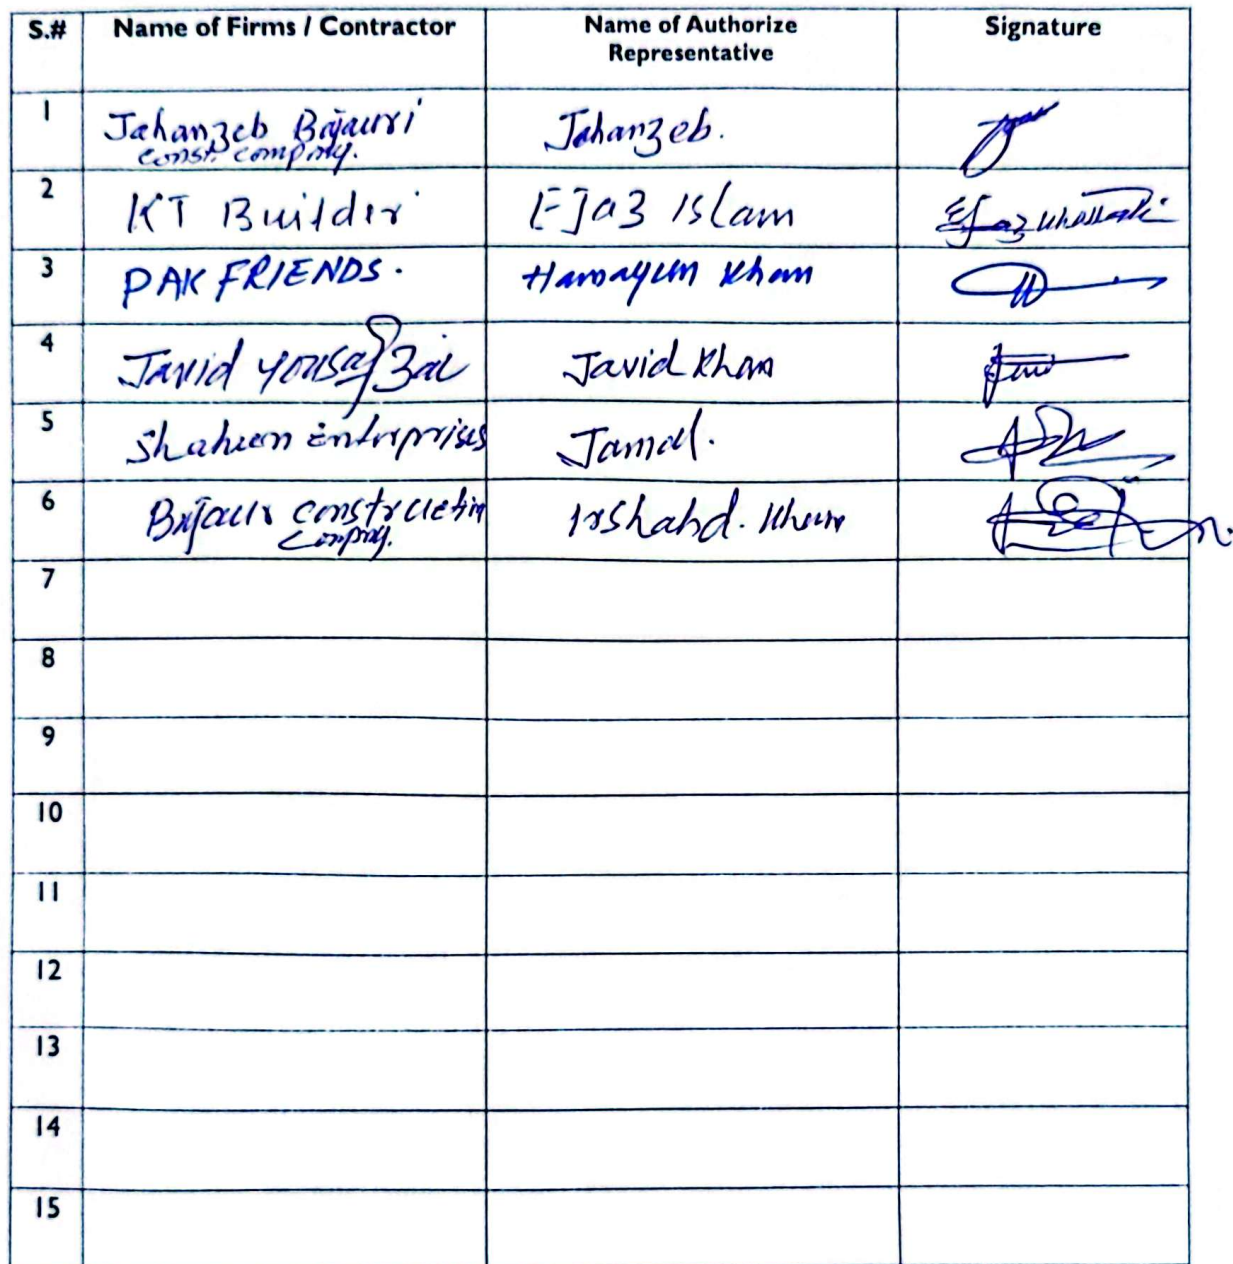 S.# Name of Firms / Contractor Name of Authorize Representative Signature
1 Jahanzeb Bajauri Jahanzeb.
const. company.
2 KT Builder EJaz Islam Ejaz Khattak
3 PAK FRIENDS. Hamayun Khan
4 Javid Yousafzai Javid Khan
5 Shaheen Enterprises Jamal.
6 Bajaur construction Irshahd. Khan
company.
7
8
9
10
11
12
13
14
15